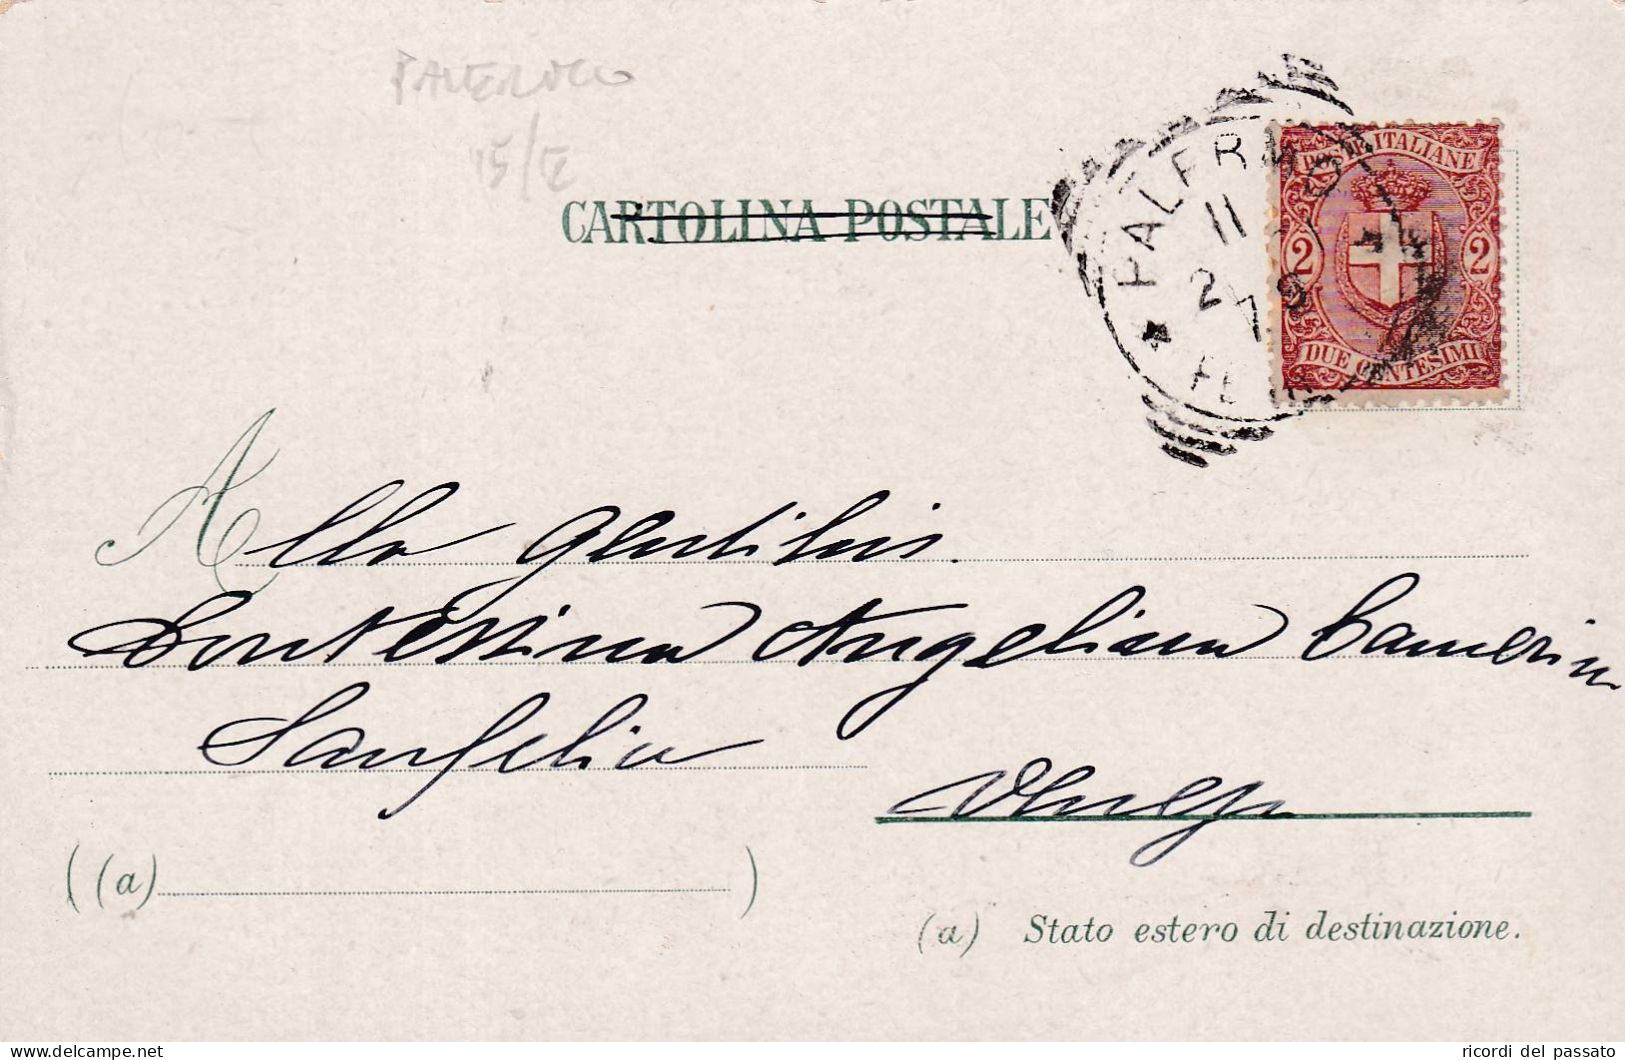 PALERMO
15/E
CARTOLINA POSTALE
PALERMO
11
2 - 7 9
FERROVIA
POSTE ITALIANE
2 2
DUE CENTESIMI
Alla Gentilis.
Contessina Angeliana Camerini
Sanfelice
Venezia
((a) )
(a) Stato estero di destinazione.
ricordi del passato